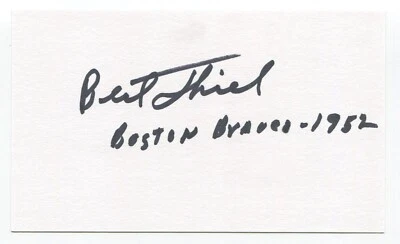 Bert Thiel
Boston Braves - 1952